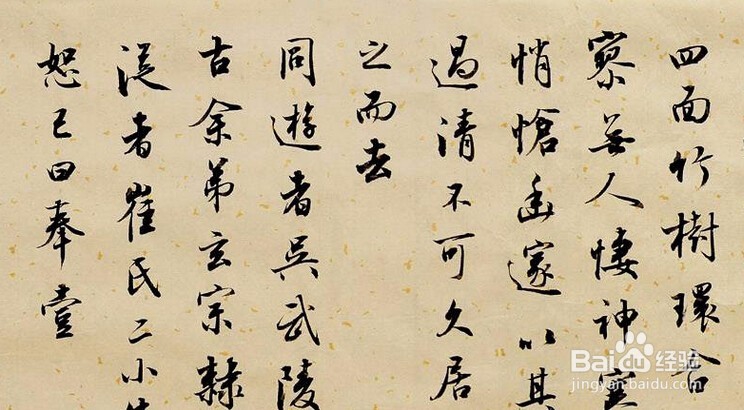 四面竹樹環合
寥無人悽神寒
悄愴幽邃以其
過清不可久居
之而去
同遊者吳武陵
古余弟玄宗隸
從者崔氏二小生
恕己曰奉壹
Baidu 经验
jingyan.baidu.com